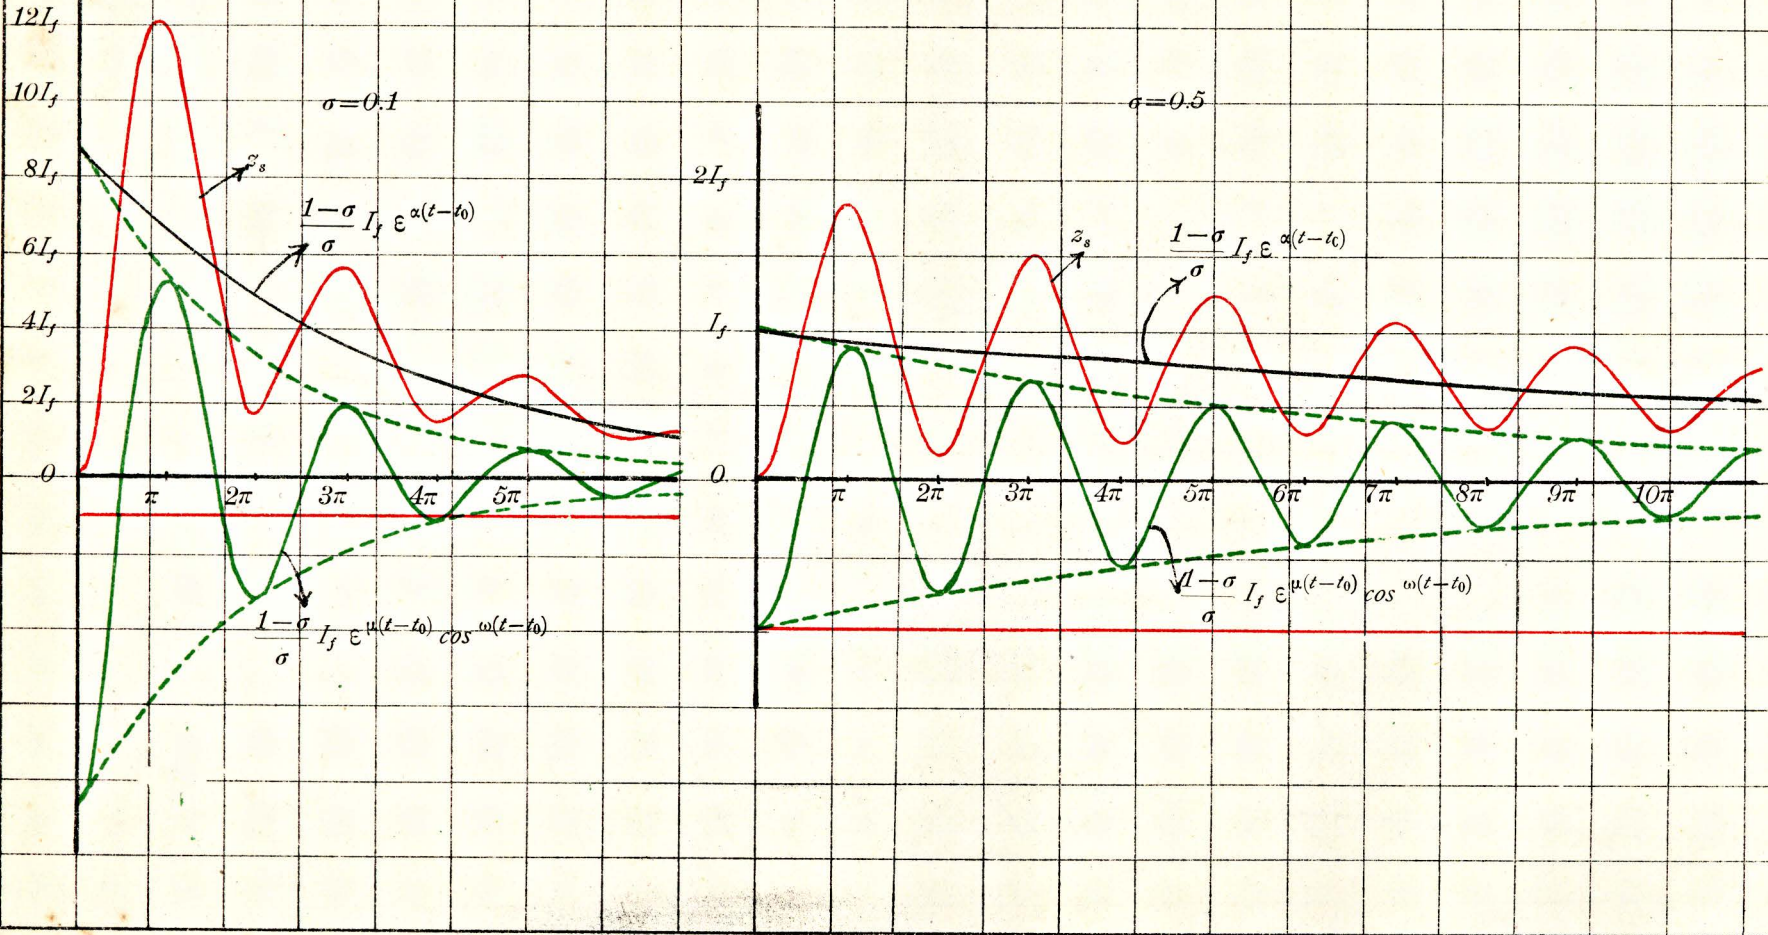 12I_f
10I_f
8I_f
6I_f
4I_f
2I_f
0
σ=0.1
z_s
1−σ/σ I_f ε^α(t−t₀)
π 2π 3π 4π 5π
1−σ/σ I_f ε^μ(t−t₀) cos ω(t−t₀)
2I_f
I_f
0
σ=0.5
z_s
1−σ/σ I_f ε^α(t−t₀)
π 2π 3π 4π 5π 6π 7π 8π 9π 10π
1−σ/σ I_f ε^μ(t−t₀) cos ω(t−t₀)